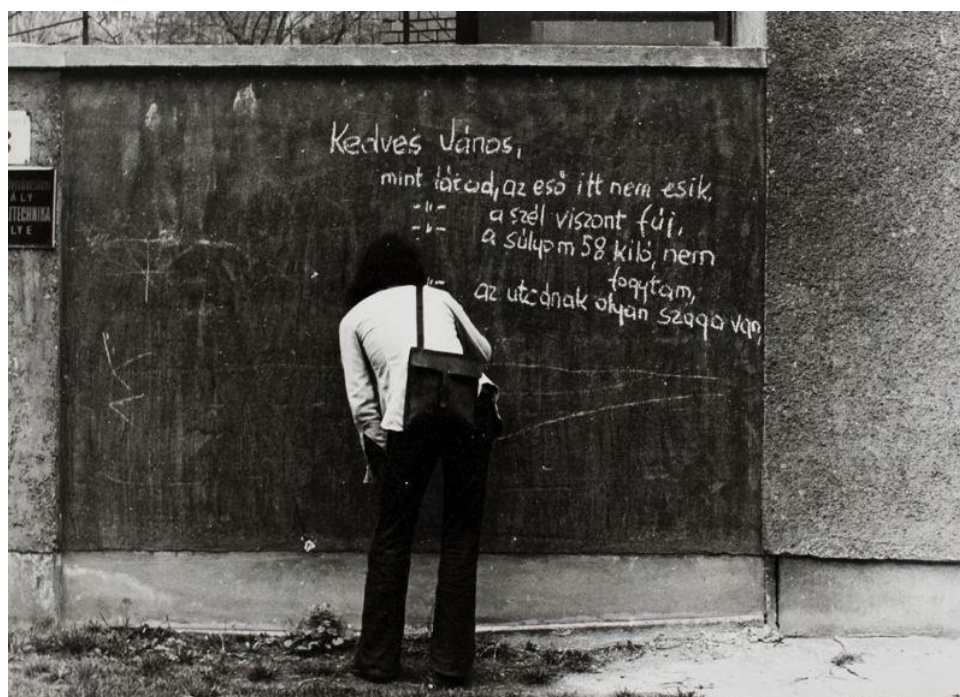 Kedves János,
mint látod, az eső itt nem esik,
-"- a szél viszont fúj,
-"- a súlyom 58 kiló, nem
fogytam,
-"- az utcának olyan szaga van,
ÁLY
LYE